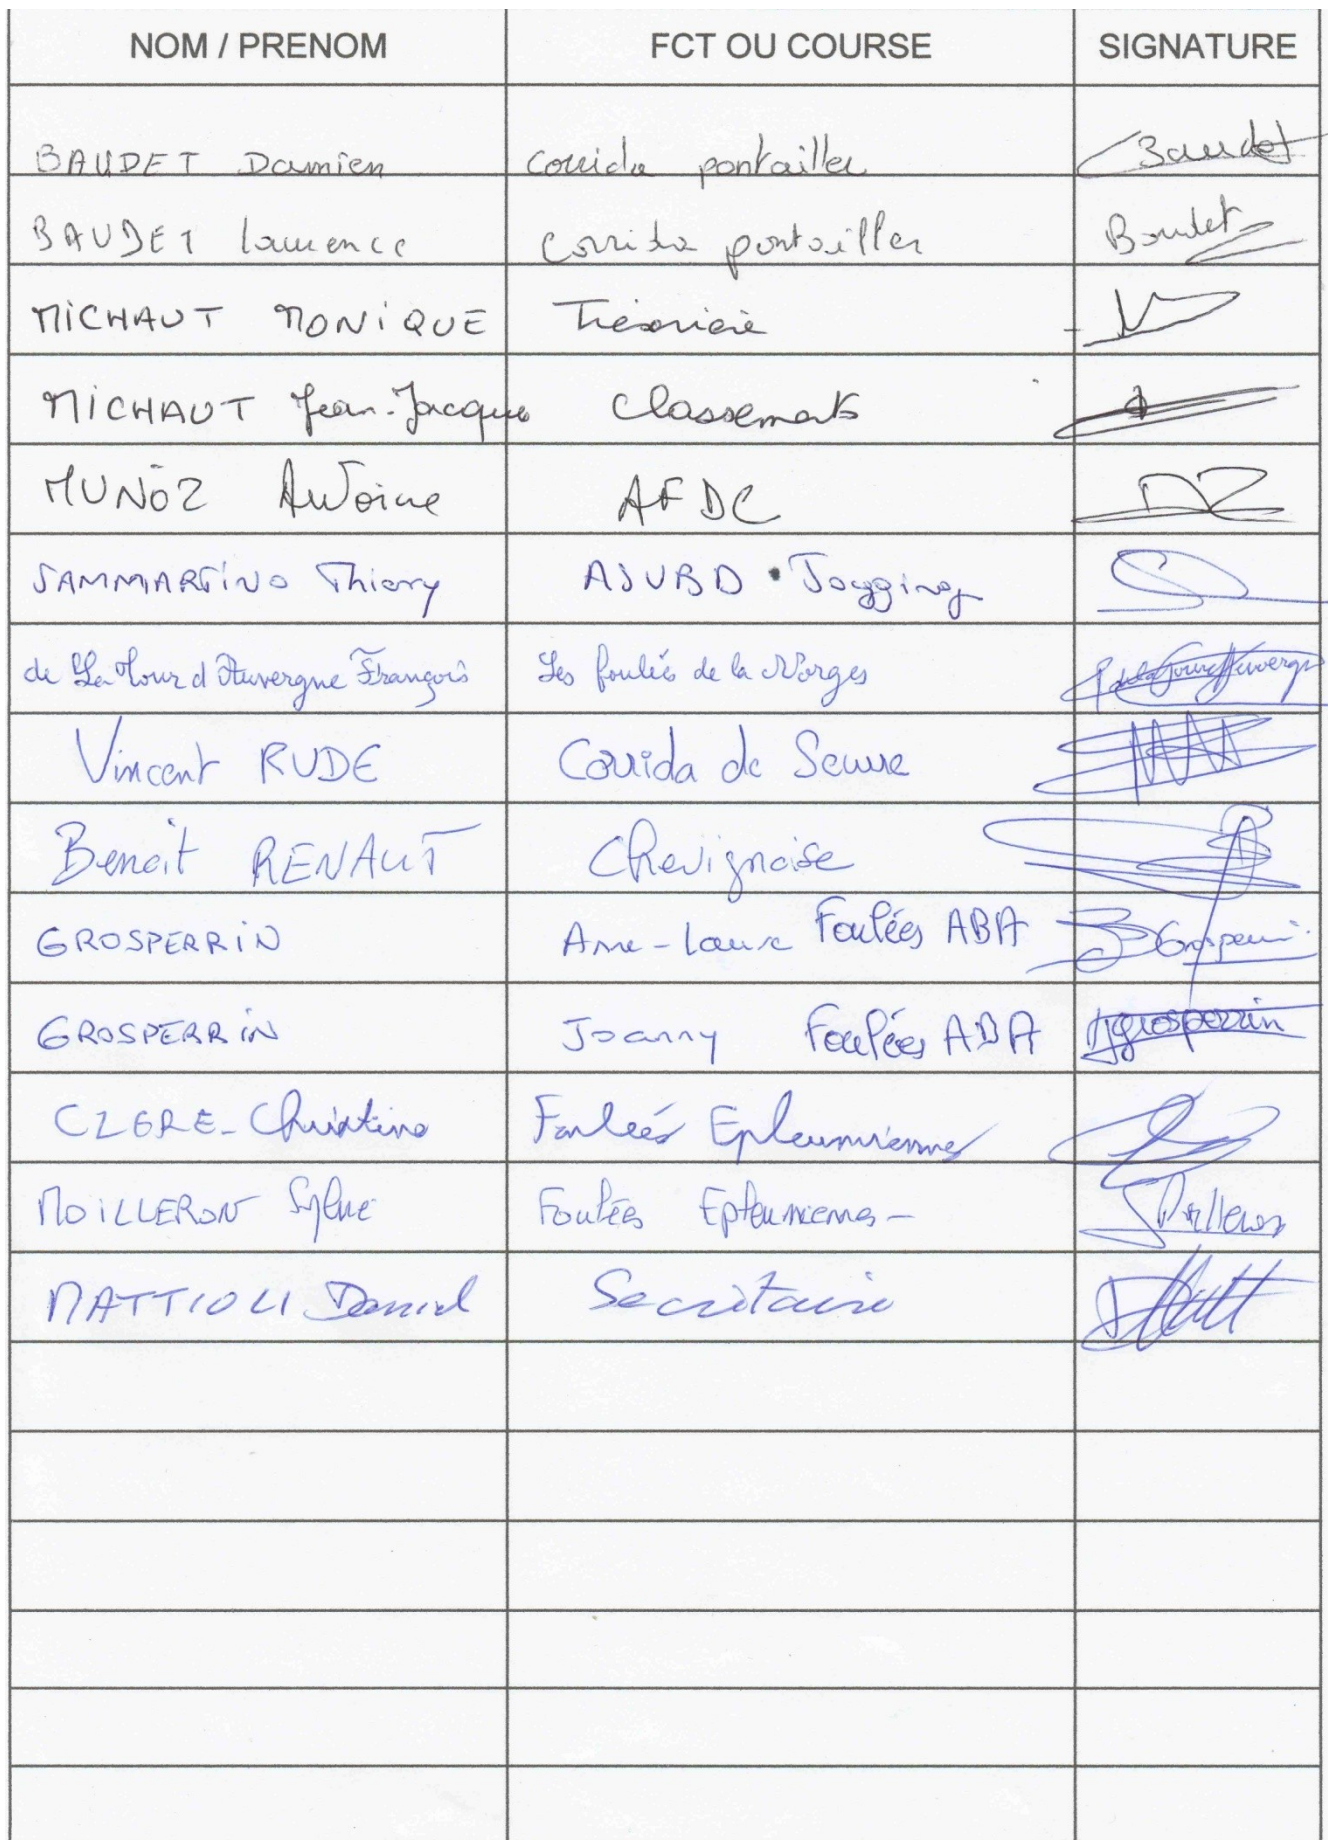 NOM / PRENOM FCT OU COURSE SIGNATURE
BAUDET Damien Corrida pontailler Baudet
BAUDET Laurence Corrida pontailler Baudet
MICHAUT MONIQUE Trésorière
MICHAUT Jean-Jacques Classements
MUÑOZ Antoine AFDC
SAMMARTINO Thierry ASUBD Jogging
de La Tour d'Auvergne François Les foulées de la Norges
Vincent RUDE Corrida de Seurre
Benoit RENAUT Chevignoise
GROSPERRIN Anne-Laure Foulées ABA Grosperrin
GROSPERRIN Joanny Foulées ABA Jgrosperrin
CLERE-Christine Foulées Epleumiennes
MOILLERON Sylvie Foulées Epleumiennes -
MATTIOLI Daniel Secrétaire